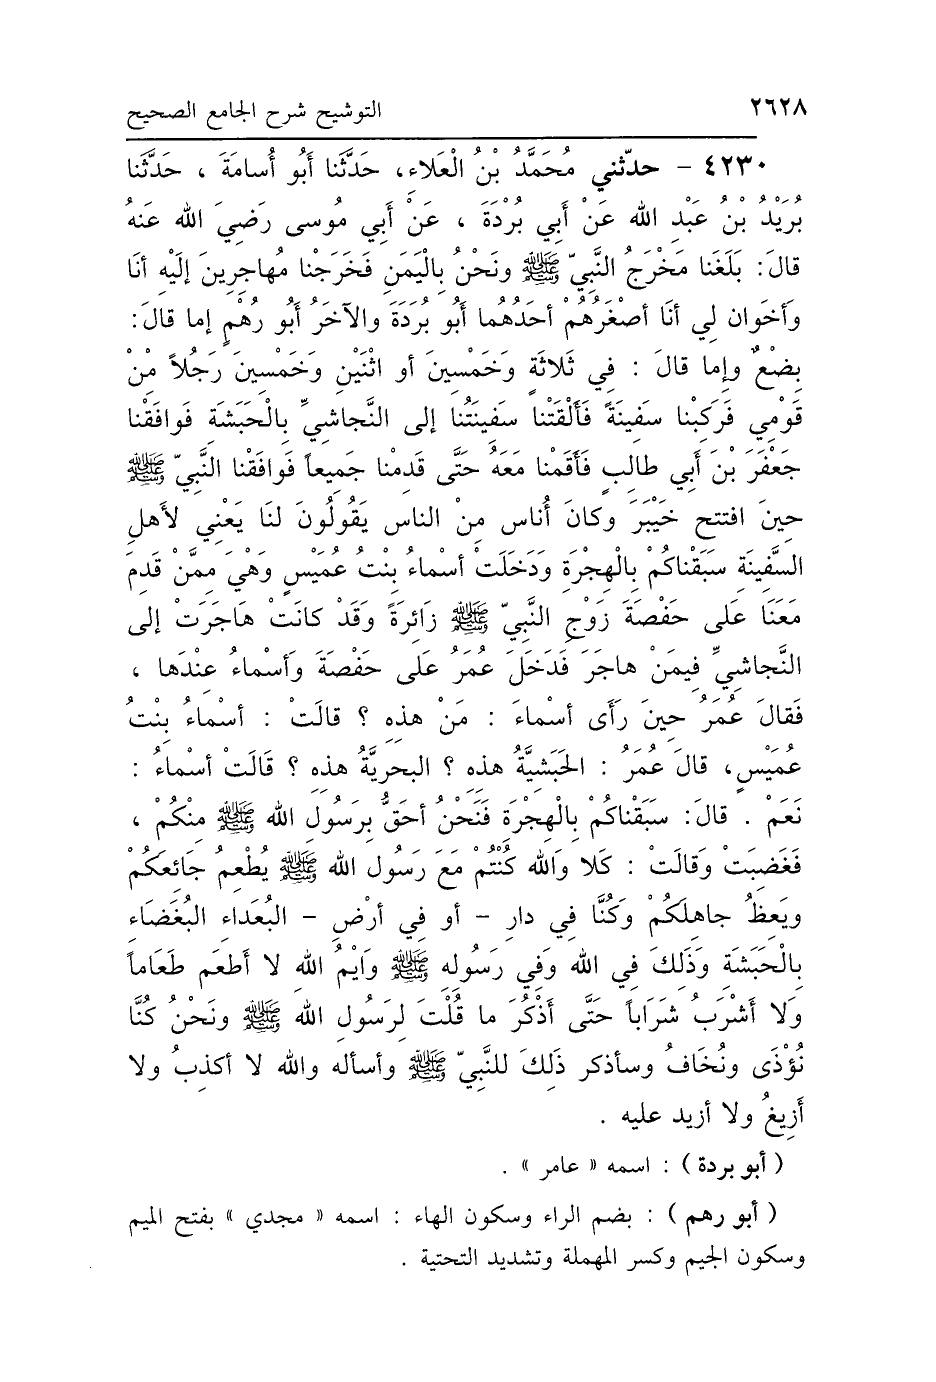 ٢٦٢٨ التوشيح شرح الجامع الصحيح
٤٢٣٠ - حدّثني مُحَمَّدُ بْنُ الْعَلاءِ، حَدَّثَنا أَبُو أُسامَةَ ، حَدَّثَنا
بُرَيْدُ بْنُ عَبْدِ اللهِ عَنْ أَبِي بُرْدَةَ ، عَنْ أَبِي مُوسى رَضِيَ اللهُ عَنهُ
قالَ: بَلَغَنا مَخْرَجُ النَّبِيِّ ﷺ ونَحْنُ بِالْيَمَنِ فَخَرَجْنا مُهاجِرِينَ إِلَيْهِ أنَا
وَأَخَوانِ لِي أنَا أصْغَرُهُمْ أحَدُهُما أَبُو بُرَدَةَ والآخَرُ أَبُو رُهْمٍ إما قالَ:
بِضْعٌ وإما قالَ : فِي ثَلاثَةٍ وَخَمْسِينَ أو اثْنَيْنِ وَخَمْسِينَ رَجُلاً مْنْ
قَوْمِي فَرَكِبْنا سفِينَةً فَأَلْقَتْنا سفِينَتُنا إلى النَّجاشِيِّ بِالْحَبَشَةِ فَوافَقْنا
جَعْفَرَ بْنَ أبِي طالِبٍ فَأقَمْنا مَعَهُ حَتَّى قَدِمْنا جَمِيعاً فَوافَقْنا النَّبِيّ ﷺ
حِينَ افتتح خَيْبَرَ وكانَ أُناس مِنْ الناس يَقُولُونَ لنَا يَعْنِي لأهلِ
السَّفِينَةِ سبَقْناكُمْ بِالْهِجْرَةِ وَدَخَلَتْ أسْماءُ بِنْتُ عُمَيْسٍ وَهْيَ مِمَّنْ قَدِمَ
مَعَنَا على حَفْصَةَ زَوْجِ النَّبِيِّ ﷺ زَائِرَةً وَقَدْ كانَتْ هَاجَرَتْ إلى
النَّجاشِيِّ فِيمَنْ هاجَرَ فَدَخَلَ عُمَرُ عَلَى حَفْصَةَ وَأسْماءُ عِنْدَها ،
فَقالَ عُمَرُ حِينَ رَأى أسْماءَ : مَنْ هذِهِ ؟ قالَتْ : أسْماءُ بِنْتُ
عُمَيْسٍ، قالَ عُمَرُ : الحَبَشِيَّةُ هذِهِ ؟ البحرِيَّةُ هذِهِ ؟ قَالَتْ أسْماءُ :
نَعَمْ . قالَ: سَبَقْناكُمْ بِالْهِجْرَةِ فَنَحْنُ أحَقُّ بِرَسُولِ اللهِ ﷺ مِنكُمْ ،
فَغَضِبَتْ وَقَالَتْ : كَلا وَاللهِ كُنْتُمْ مَعَ رَسُولِ اللهِ ﷺ يُطْعِمُ جَائِعَكُمْ
ويَعِظُ جاهِلَكُمْ وَكُنَّا فِي دارِ - أو فِي أرْضِ - البُعَداءِ البُغَضَاءِ
بِالْحَبَشَةِ وَذَلِكَ فِي اللهِ وَفِي رَسُولِهِ ﷺ وَايْمُ اللهِ لا أطعَم طَعَاماً
وَلا أشْرَبُ شَرَاباً حَتَّى أذْكُرَ ما قُلْتَ لِرَسُولِ اللهِ ﷺ ونَحْنُ كُنَّا
نُؤْذَى ونُخَافُ وسأذكر ذَلِكَ للنَّبِيِّ ﷺ وأسأله واللهِ لا أكذِبُ ولا
أَزِيغُ ولا أزيد عليه .
( أبو بردة ) : اسمه « عامر » .
( أبو رهم ) : بضم الراء وسكون الهاء : اسمه « مجدي » بفتح الميم
وسكون الجيم وكسر المهملة وتشديد التحتية .